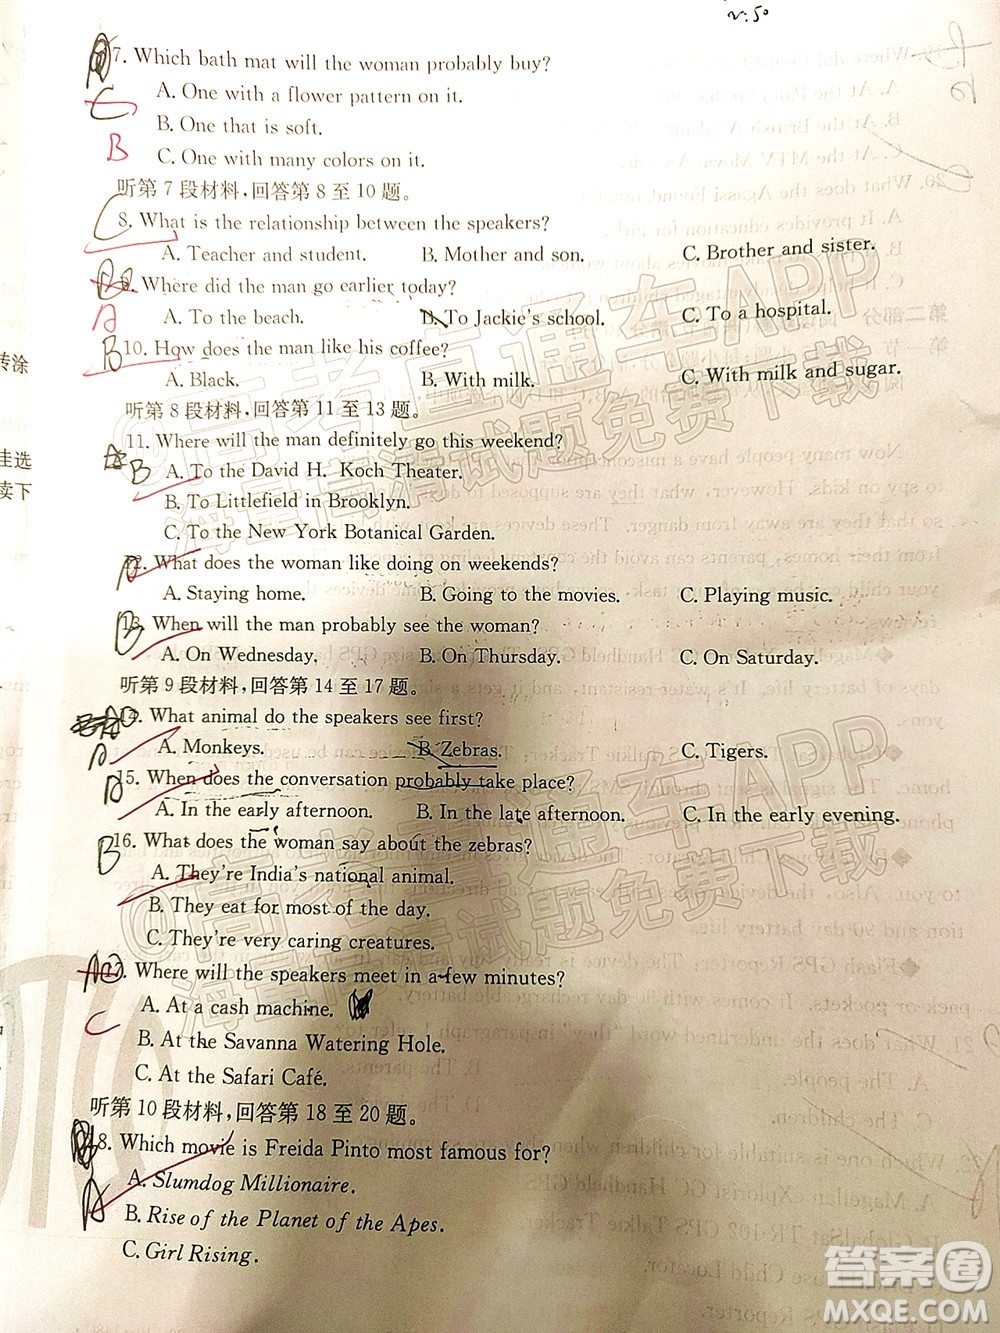 7. Which bath mat will the woman probably buy?
A. One with a flower pattern on it.
B. One that is soft.
C. One with many colors on it.
听第 7 段材料，回答第 8 至 10 题。
8. What is the relationship between the speakers?
A. Teacher and student. B. Mother and son. C. Brother and sister.
9. Where did the man go earlier today?
A. To the beach. B. To Jackie's school. C. To a hospital.
10. How does the man like his coffee?
A. Black. B. With milk. C. With milk and sugar.
听第 8 段材料，回答第 11 至 13 题。
11. Where will the man definitely go this weekend?
A. To the David H. Koch Theater.
B. To Littlefield in Brooklyn.
C. To the New York Botanical Garden.
12. What does the woman like doing on weekends?
A. Staying home. B. Going to the movies. C. Playing music.
13. When will the man probably see the woman?
A. On Wednesday. B. On Thursday. C. On Saturday.
听第 9 段材料，回答第 14 至 17 题。
14. What animal do the speakers see first?
A. Monkeys. B. Zebras. C. Tigers.
15. When does the conversation probably take place?
A. In the early afternoon. B. In the late afternoon. C. In the early evening.
16. What does the woman say about the zebras?
A. They're India's national animal.
B. They eat for most of the day.
C. They're very caring creatures.
17. Where will the speakers meet in a few minutes?
A. At a cash machine.
B. At the Savanna Watering Hole.
C. At the Safari Café.
听第 10 段材料，回答第 18 至 20 题。
18. Which movie is Freida Pinto most famous for?
A. Slumdog Millionaire.
B. Rise of the Planet of the Apes.
C. Girl Rising.
转涂
佳选
读下
@高考直通车APP
海量高清试题免费下载
@高考直通车APP
海量高清试题免费下载
答案圈
MXQE.COM